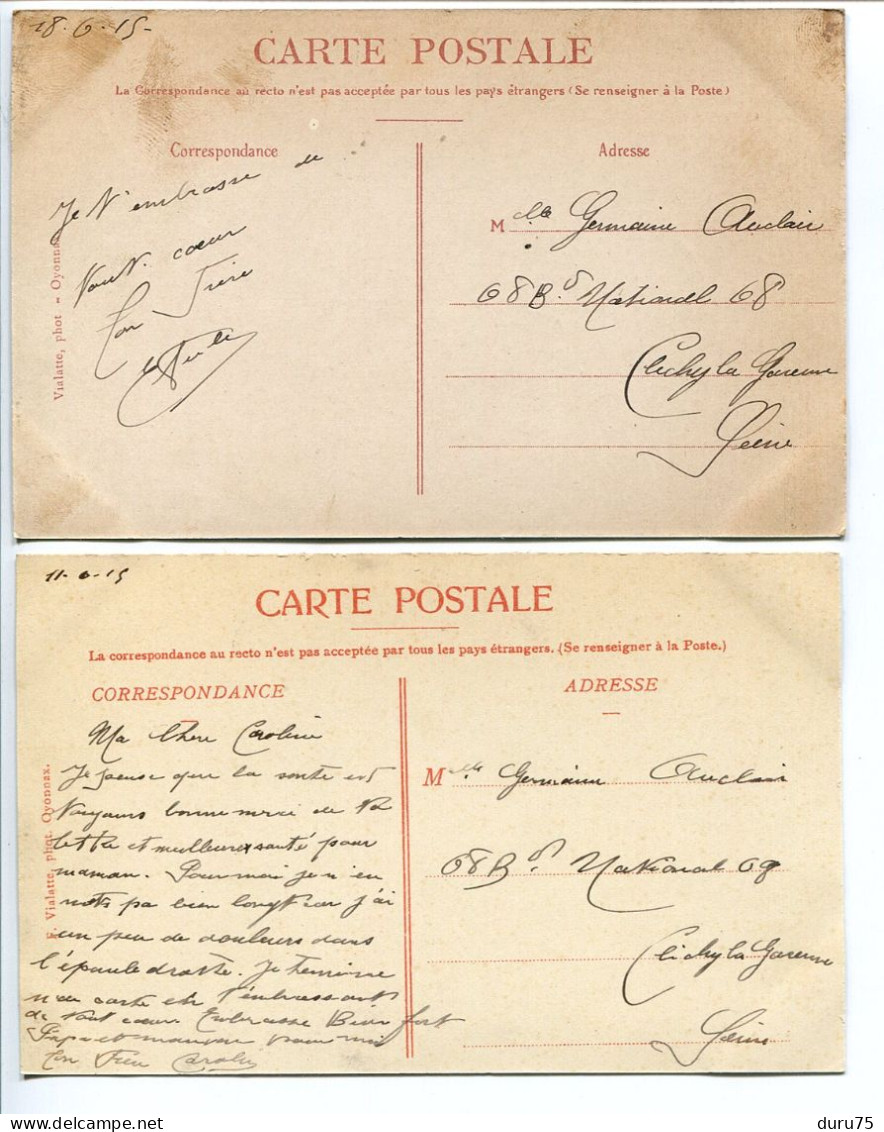 18.6.15-
CARTE POSTALE
La Correspondance au recto n'est pas acceptée par tous les pays étrangers (Se renseigner à la Poste)
Correspondance
Je t'embrasse de
tout coeur
Ton Frère
Vialatte, phot - Oyonnax
Adresse
Mlle Germaine Auclair
68 Bd National 68
Clichy la Garenne
Seine
11-6-15
CARTE POSTALE
La correspondance au recto n'est pas acceptée par tous les pays étrangers. (Se renseigner à la Poste.)
CORRESPONDANCE
Ma Chere Caroline
Je pense que la santé est
toujours bonne merci de ta
lettre et meilleure santé pour
maman. Pour moi je n'en
pa bien long car j'ai
un peu de douleurs dans
l'épaule droite. Je termine
ma carte en t'embrassant
de tout coeur. Embrasse Bien fort
Papa et maman pour moi
Ton Frère
F. Vialatte, phot. Oyonnax.
ADRESSE
Mlle Germaine Auclair
68 Bd National 68
Clichy la Garenne
Seine
delcampe.net
duru75